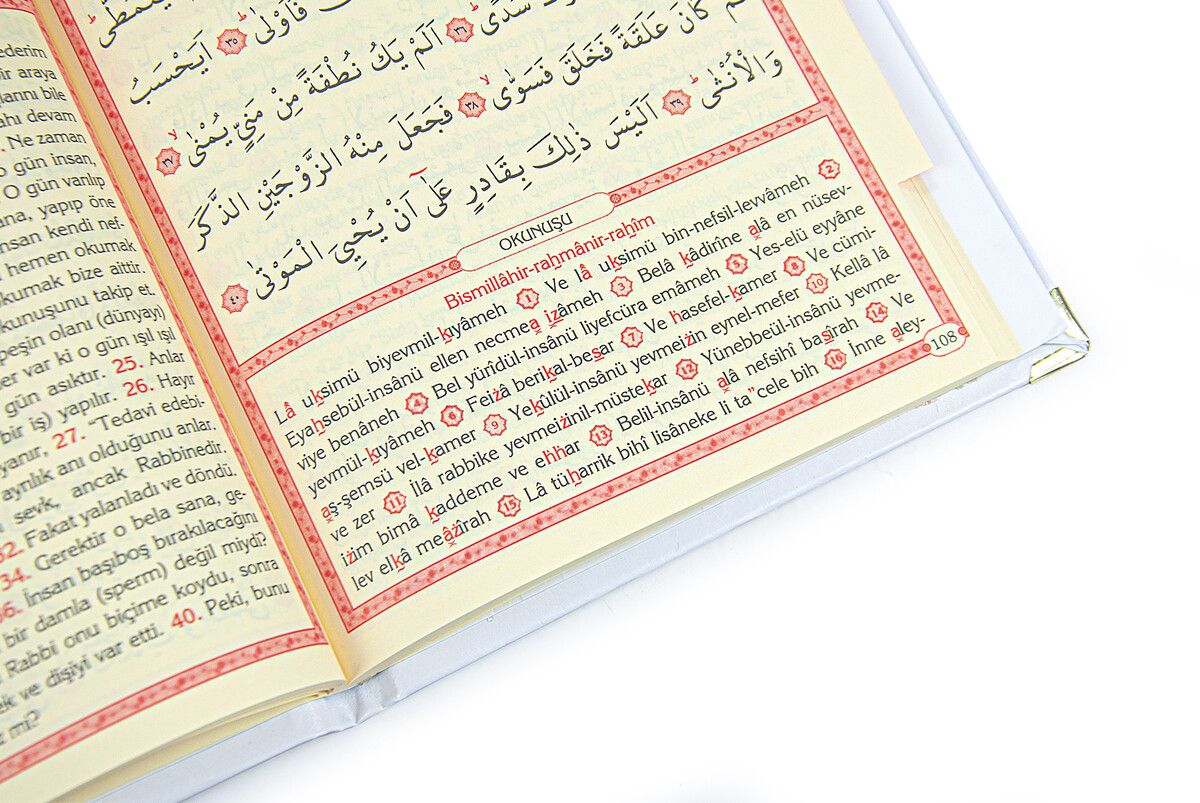 ederim
bir araya
larını bile
ahı devam
. Ne zaman
o gün insan,
O gün varılıp
ana, yapıp öne
insan kendi nef-
hemen okumak
kumak bize aittir.
kunuşunu takip et.
peşin olanı (dünyayı)
er var ki o gün ışıl ışıl
gün asıktır. 25. Anlar
bir iş) yapılır. 26. Hayır
yanır, 27. “Tedavi edebi-
ayrılık anı olduğunu anlar.
sevk, ancak Rabbinedir.
32. Fakat yalanladı ve döndü.
34. Gerektir o bela sana, ge-
36. İnsan başıboş bırakılacağını
bir damla (sperm) değil miydi?
Rabbi onu biçime koydu, sonra
ek ve dişiyi var etti. 40. Peki, bunu
mi?
يَتَمَطّٰى
فَاَوْلٰى ﴿٣٥﴾ اَيَحْسَبُ
سُدًى ﴿٣٦﴾ اَلَمْ يَكُ نُطْفَةً مِنْ مَنِيٍّ يُمْنٰى ﴿٣٧﴾
كَانَ عَلَقَةً فَخَلَقَ فَسَوّٰى ﴿٣٨﴾ فَجَعَلَ مِنْهُ الزَّوْجَيْنِ الذَّكَرَ
وَالْاُنْثٰى ﴿٣٩﴾ اَلَيْسَ ذٰلِكَ بِقَادِرٍ عَلٰٓى اَنْ يُحْيِيَ الْمَوْتٰى ﴿٤٠﴾
OKUNUŞU
Bismillâhir-rahmânir-rahîm
Lâ uksimü biyevmil-kıyâmeh 1 Ve lâ uksimü bin-nefsil-levvâmeh 2
Eyahsebül-insânü ellen necmea izâmeh 3 Belâ kâdirîne alâ en nüsev-
viye benâneh 4 Bel yürîdül-insânü liyefcüra emâmeh 5 Yes-elü eyyâne
yevmül-kıyâmeh 6 Feiżâ berikal-besar 7 Ve hasefel-kamer 8 Ve cümi-
aş-şemsü vel-kamer 9 Yekûlül-insânü yevmeiżin eynel-mefer 10 Kellâ lâ
ve zer 11 İlâ rabbike yevmeiżinil-müstekar 12 Yünebbeül-insânü yevme-
iżim bimâ kaddeme ve ehhar 13 Belil-insânü alâ nefsihî basîrah 14 Ve
lev elkâ meâżîrah 15 Lâ tüharrik bihî lisâneke li ta”cele bih 16 İnne aley-
108